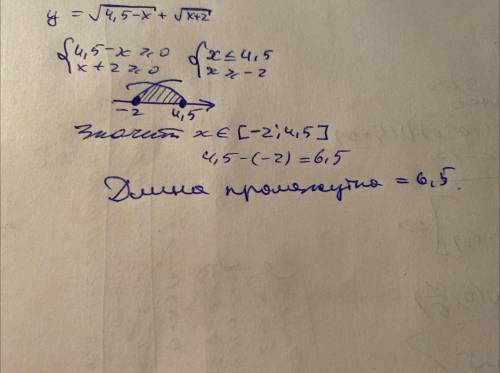 y = √4,5-x + √x+2
{4,5-x ≥ 0 {x ≤ 4,5
x+2 ≥ 0 x ≥ -2
-2 4,5
Значит x ∈ [-2; 4,5]
4,5-(-2) = 6,5
Длина промежутка = 6,5.